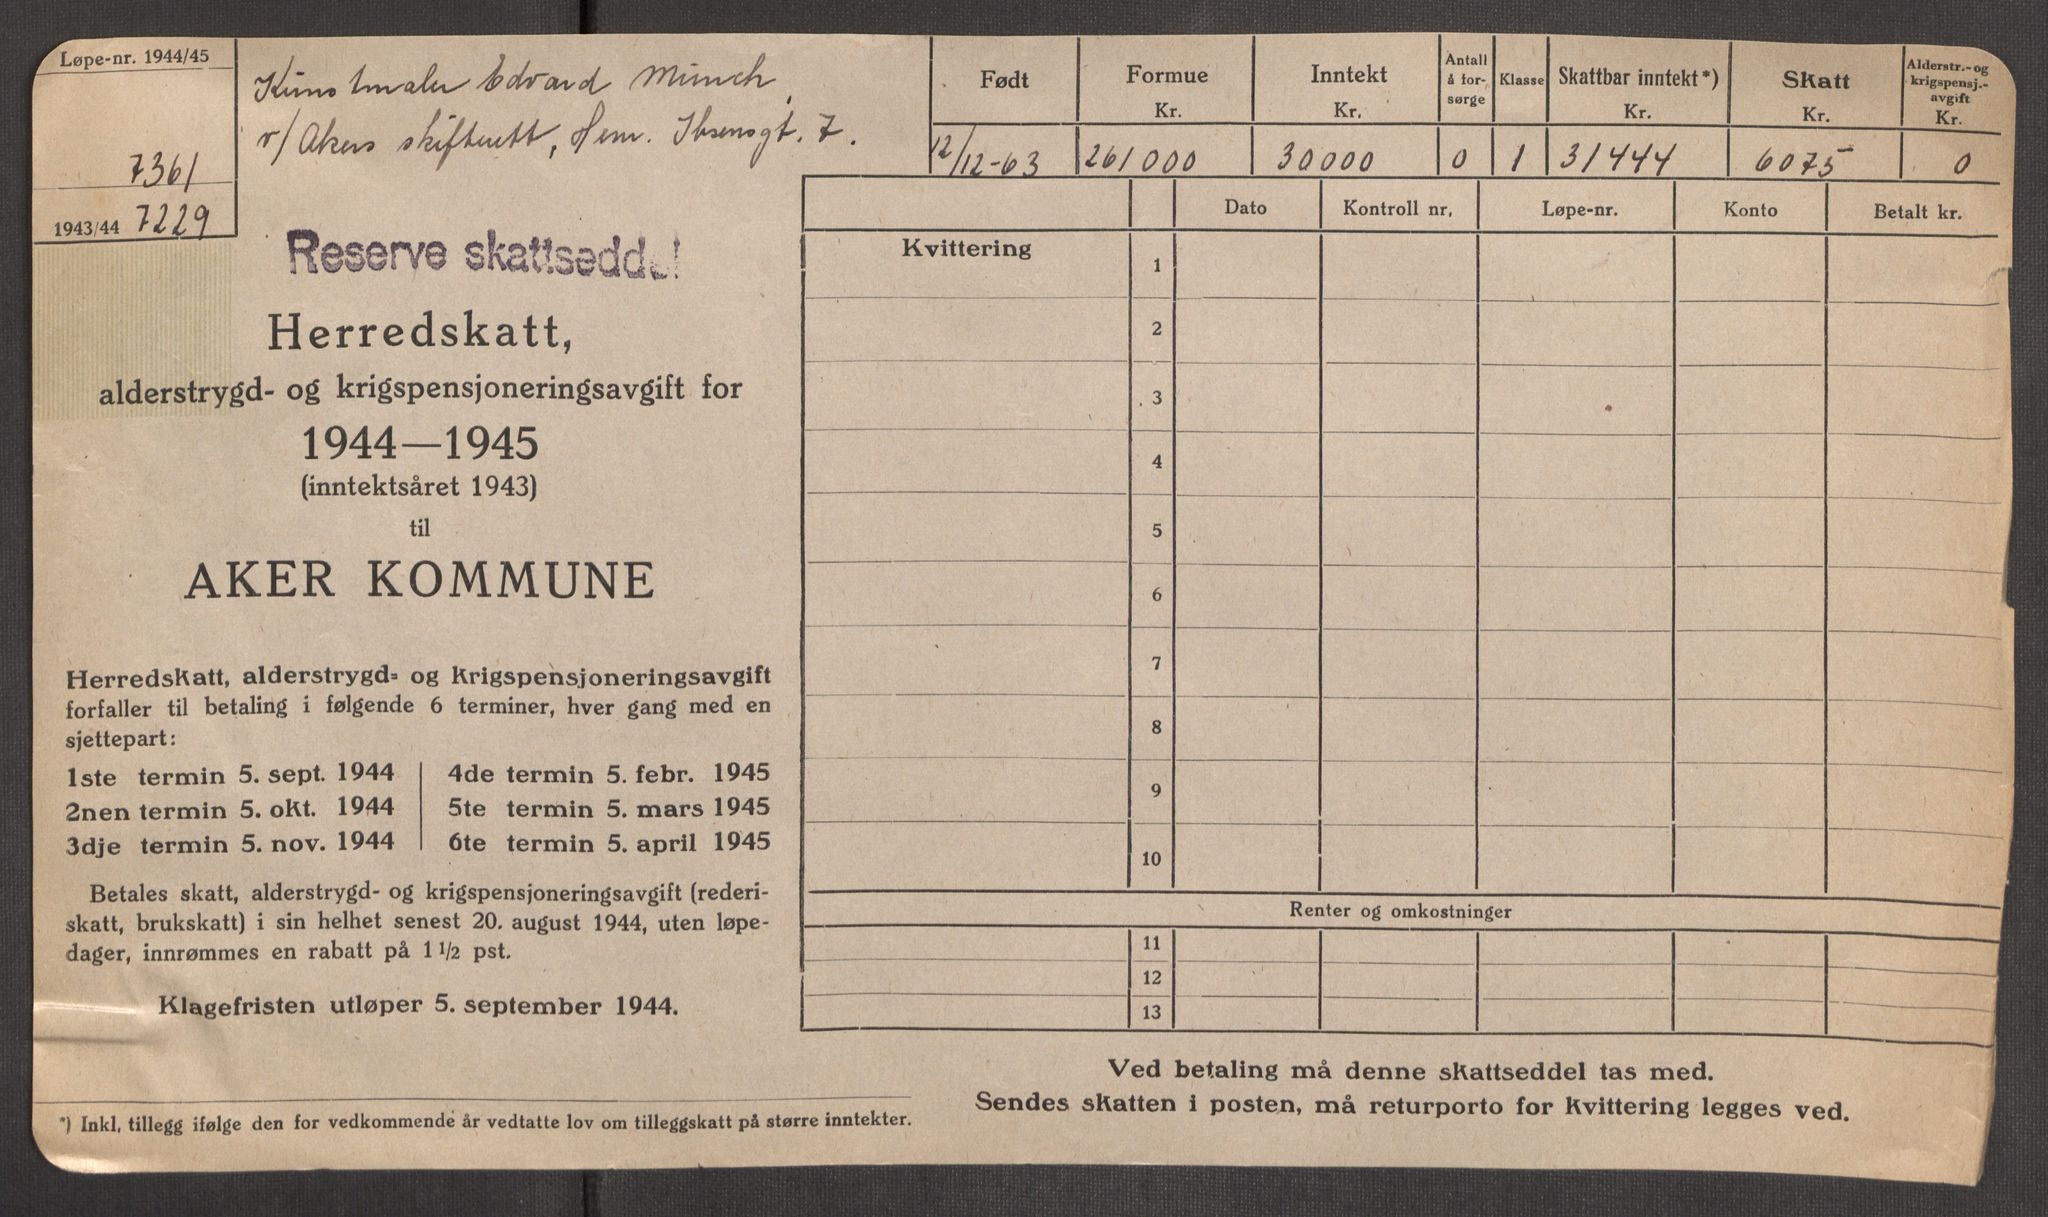 Løpe-nr. 1944/45
7361
1943/44 7229
Kunstmaler Edvard Munch
v/ Akers skifterett, Henr. Ibsensgt. 7.
Reserve skattseddel
Herredskatt,
alderstrygd- og krigspensjoneringsavgift for
1944—1945
(inntektsåret 1943)
til
AKER KOMMUNE
Herredskatt, alderstrygd- og krigspensjoneringsavgift
forfaller til betaling i følgende 6 terminer, hver gang med en
sjettepart:
1ste termin 5. sept. 1944 | 4de termin 5. febr. 1945
2nen termin 5. okt. 1944 | 5te termin 5. mars 1945
3dje termin 5. nov. 1944 | 6te termin 5. april 1945
Betales skatt, alderstrygd- og krigspensjoneringsavgift (rederi-
skatt, brukskatt) i sin helhet senest 20. august 1944, uten løpe-
dager, innrømmes en rabatt på 1 1/2 pst.
Klagefristen utløper 5. september 1944.
*) Inkl. tillegg ifølge den for vedkommende år vedtatte lov om tilleggskatt på større inntekter.
Født
Formue
Kr.
Inntekt
Kr.
Antall
å for-
sørge
Klasse
Skattbar inntekt*)
Kr.
Skatt
Kr.
Alderstr.- og
krigspensj.-
avgift
Kr.
12/12-63 261000 30000 0 1 31444 6075 0
Dato Kontroll nr. Løpe-nr. Konto Betalt kr.
Kvittering 1
2
3
4
5
6
7
8
9
10
Renter og omkostninger
11
12
13
Ved betaling må denne skattseddel tas med.
Sendes skatten i posten, må returporto for kvittering legges ved.